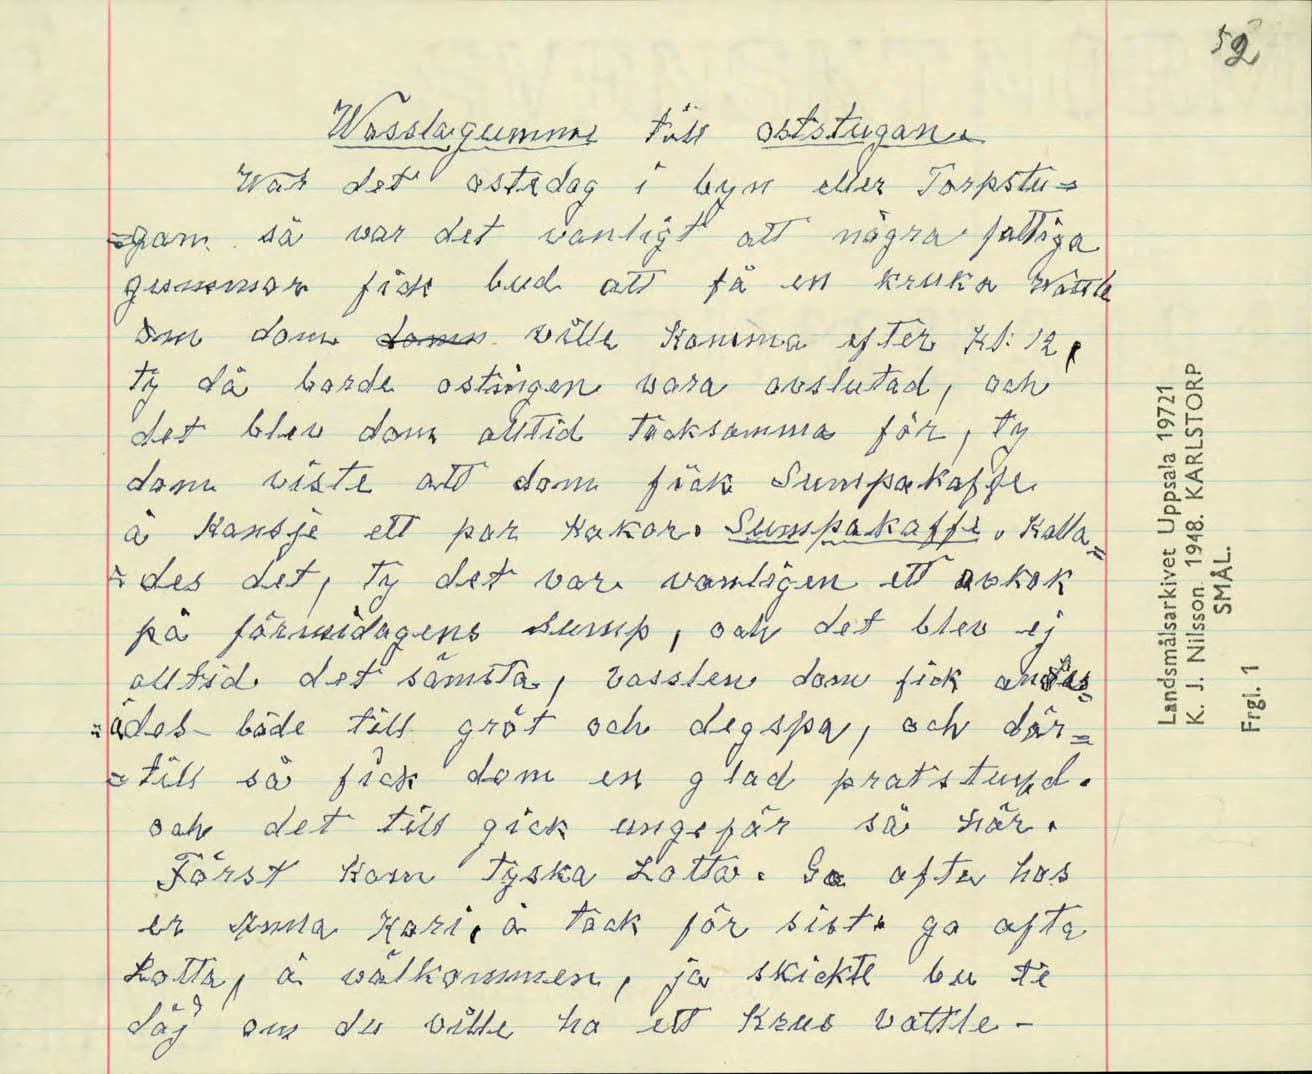 52
Wasslagummer till oststugan.
War det ostedag i byn eller Torpstu=
=gan så var det vanligt att några fattiga
gummor fick bud att få en kruka Wattle
om dom dom ville komma efter Kl: 12,
ty då borde ostningen vara avslutad, och
det blev dom alltid tacksamma för, ty
dom viste att dom fick Sumpakaffe
å kansje ett par kakor. Sumpakaffe. Kalla=
=des det, ty det var vanligen ett avkok
på förmidagens sump, och det blev ej
alltid det sämsta, vasslen dom fick
både till gröt och degspa, och där=
=till så fick dom en glad pratstund.
och det till gick ungefär så här.
Först kom Tyska Lotta. Go afta hos
er Anna Kari, å tack för sist. go afta
Lotta, å wälkommen, ja skickte bu te
däj om du ville ha ett krus vattle -
Landsmålsarkivet Uppsala 19721
K. J. Nilsson. 1948. KARLSTORP
SMÅL.
Frgl. 1